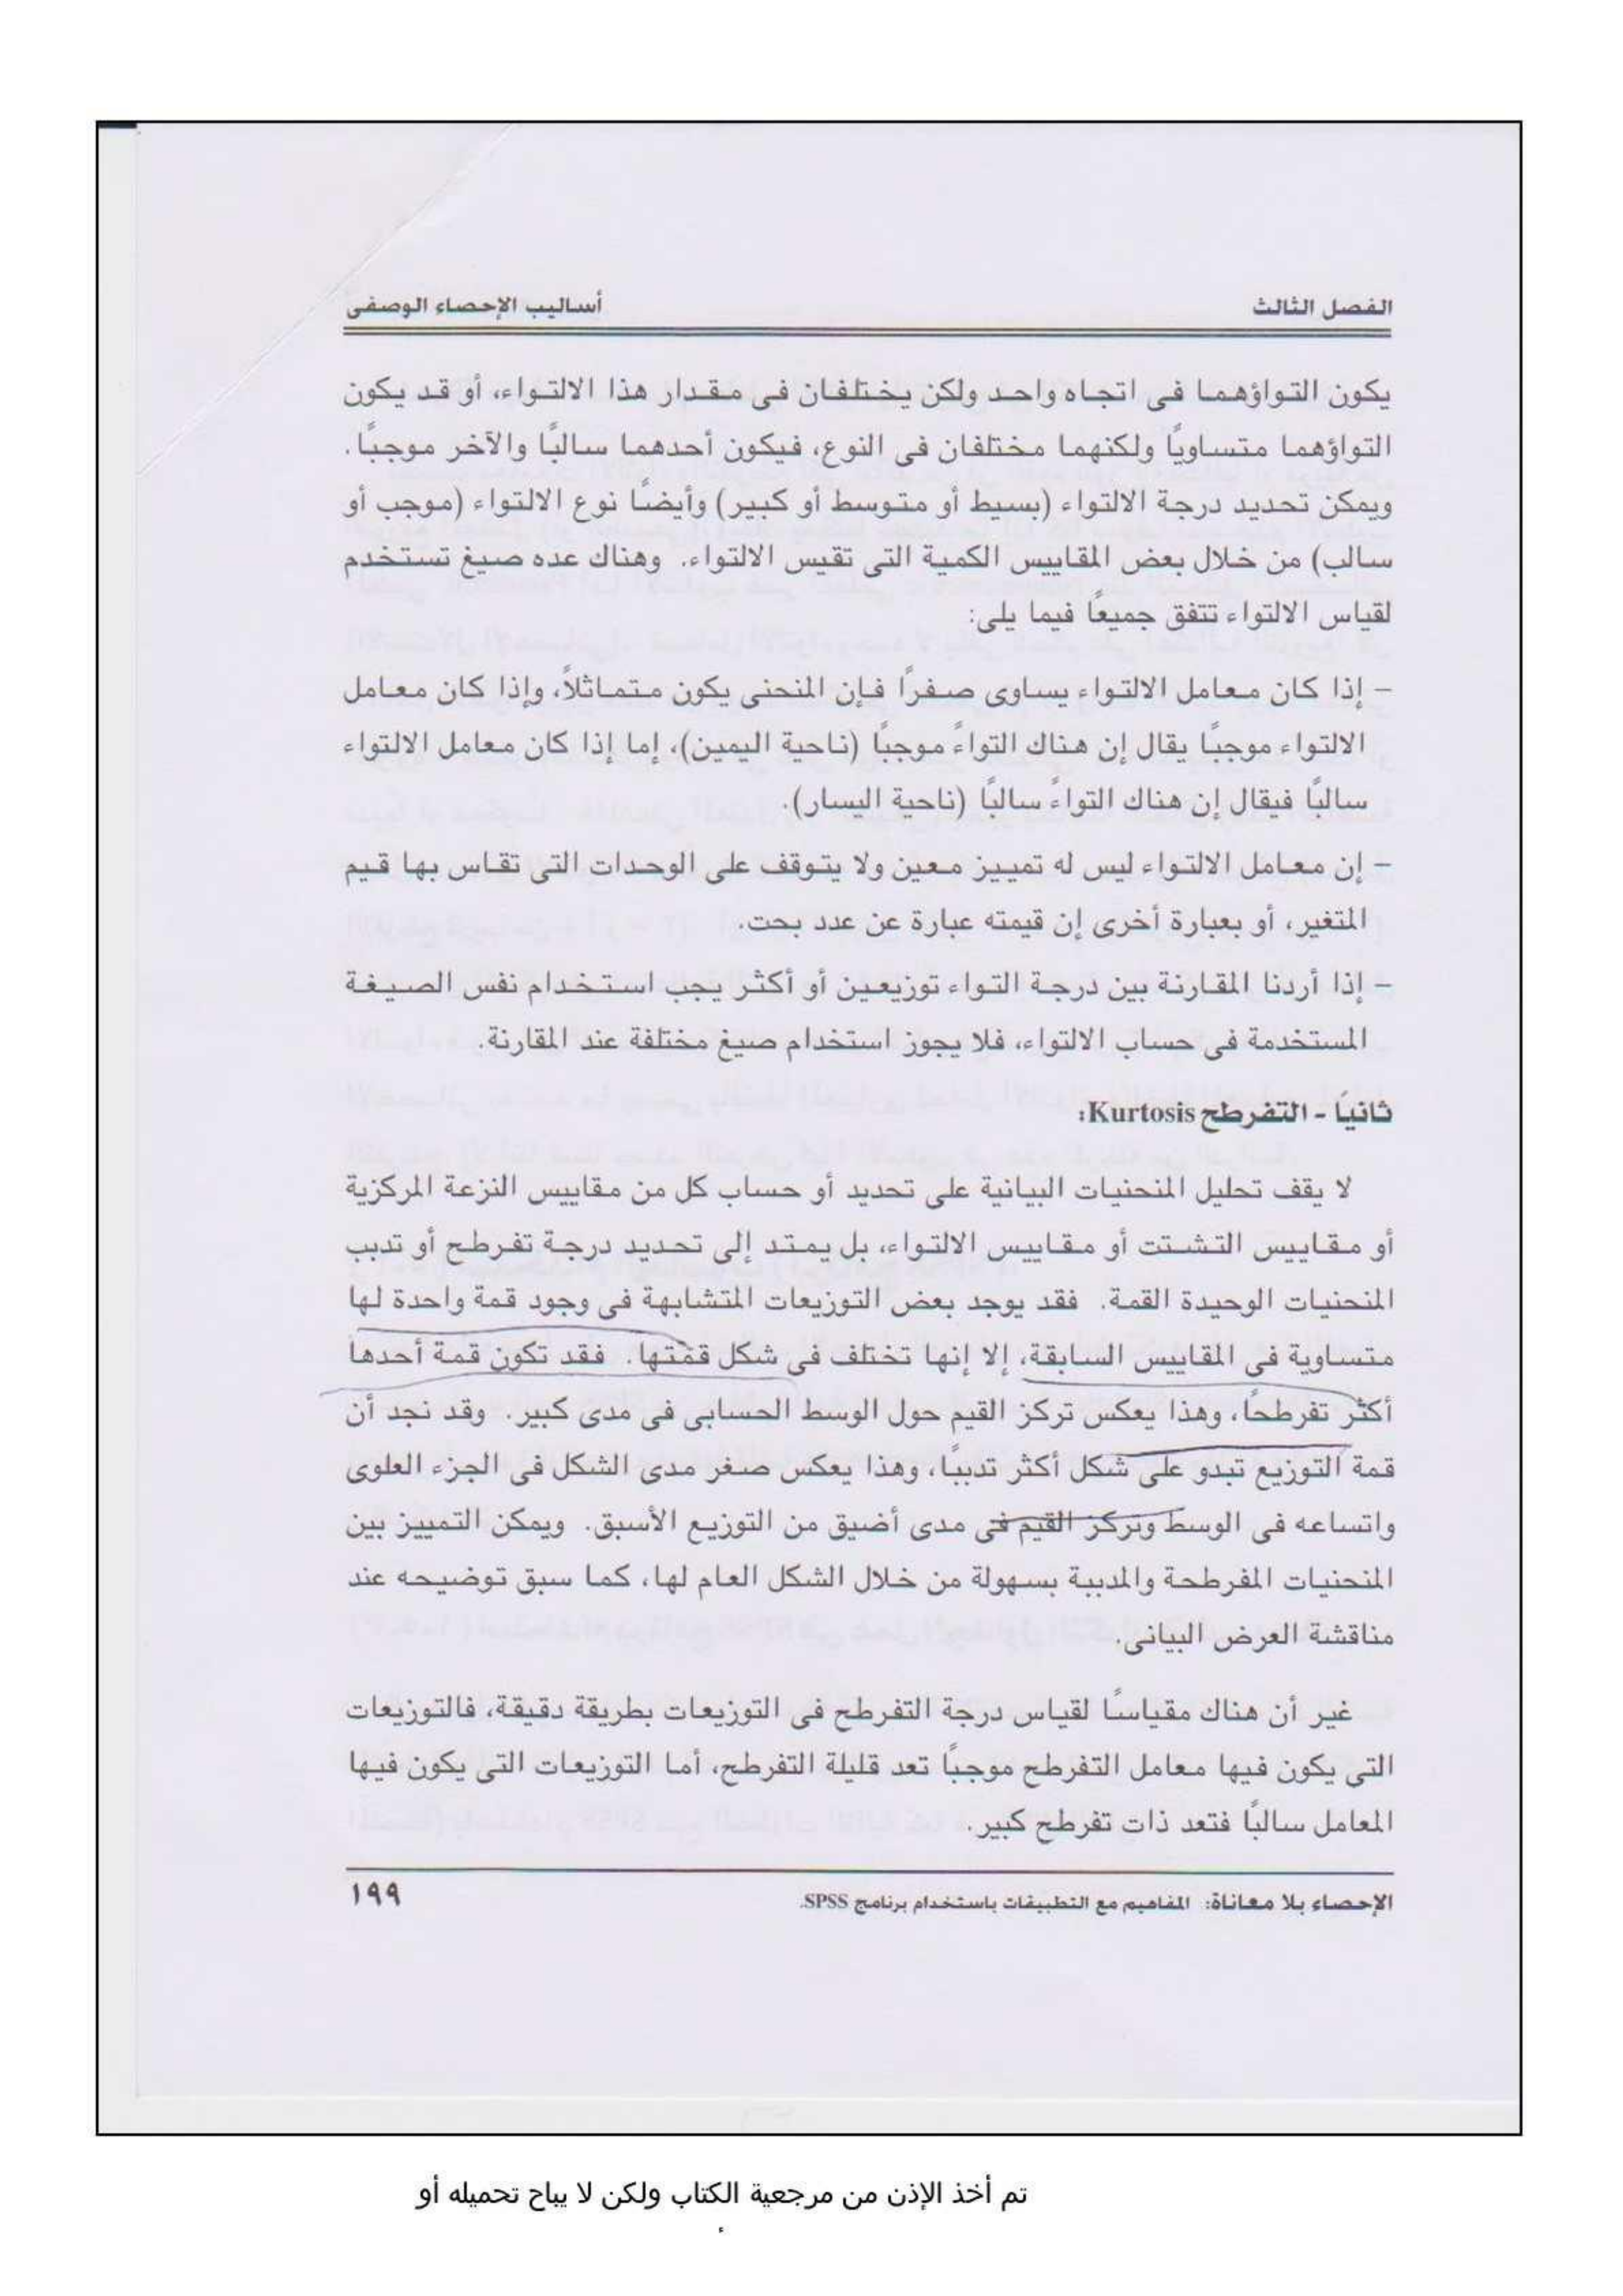 الفصل الثالث
أساليب الإحصاء الوصفى
يكون التواؤهما فى اتجاه واحد ولكن يختلفان فى مقدار هذا الالتواء، أو قد يكون
التواؤهما متساوياً ولكنهما مختلفان فى النوع، فيكون أحدهما سالبًا والآخر موجبًا.
ويمكن تحديد درجة الالتواء (بسيط أو متوسط أو كبير) وأيضًا نوع الالتواء (موجب أو
سالب) من خلال بعض المقاييس الكمية التى تقيس الالتواء. وهناك عده صيغ تستخدم
لقياس الالتواء تتفق جميعًا فيما يلى:
- إذا كان معامل الالتواء يساوى صفرًا فإن المنحنى يكون متماثلاً، وإذا كان معامل
الالتواء موجبًا يقال إن هناك التواءً موجبًا (ناحية اليمين)، إما إذا كان معامل الالتواء
سالبًا فيقال إن هناك التواءً سالبًا (ناحية اليسار).
- إن معامل الالتواء ليس له تمييز معين ولا يتوقف على الوحدات التى تقاس بها قيم
المتغير، أو بعبارة أخرى إن قيمته عبارة عن عدد بحت.
- إذا أردنا المقارنة بين درجة التواء توزيعين أو أكثر يجب استخدام نفس الصيغة
المستخدمة فى حساب الالتواء، فلا يجوز استخدام صيغ مختلفة عند المقارنة.
ثانياً - التفرطح Kurtosis:
لا يقف تحليل المنحنيات البيانية على تحديد أو حساب كل من مقاييس النزعة المركزية
أو مقاييس التشتت أو مقاييس الالتواء، بل يمتد إلى تحديد درجة تفرطح أو تدبب
المنحنيات الوحيدة القمة. فقد يوجد بعض التوزيعات المتشابهة فى وجود قمة واحدة لها
متساوية فى المقاييس السابقة، إلا إنها تختلف فى شكل قمتها. فقد تكون قمة أحدها
أكثر تفرطحًا، وهذا يعكس تركز القيم حول الوسط الحسابى فى مدى كبير. وقد نجد أن
قمة التوزيع تبدو على شكل أكثر تدببًا، وهذا يعكس صغر مدى الشكل فى الجزء العلوى
واتساعه فى الوسط وتركز القيم فى مدى أضيق من التوزيع الأسبق. ويمكن التمييز بين
المنحنيات المفرطحة والمدببة بسهولة من خلال الشكل العام لها، كما سبق توضيحه عند
مناقشة العرض البيانى.
غير أن هناك مقياسًا لقياس درجة التفرطح فى التوزيعات بطريقة دقيقة، فالتوزيعات
التى يكون فيها معامل التفرطح موجبًا تعد قليلة التفرطح، أما التوزيعات التى يكون فيها
المعامل سالبًا فتعد ذات تفرطح كبير.
الإحصاء بلا معاناة: المفاهيم مع التطبيقات باستخدام برنامج SPSS.
١٩٩
تم أخذ الإذن من مرجعية الكتاب ولكن لا يباح تحميله أو